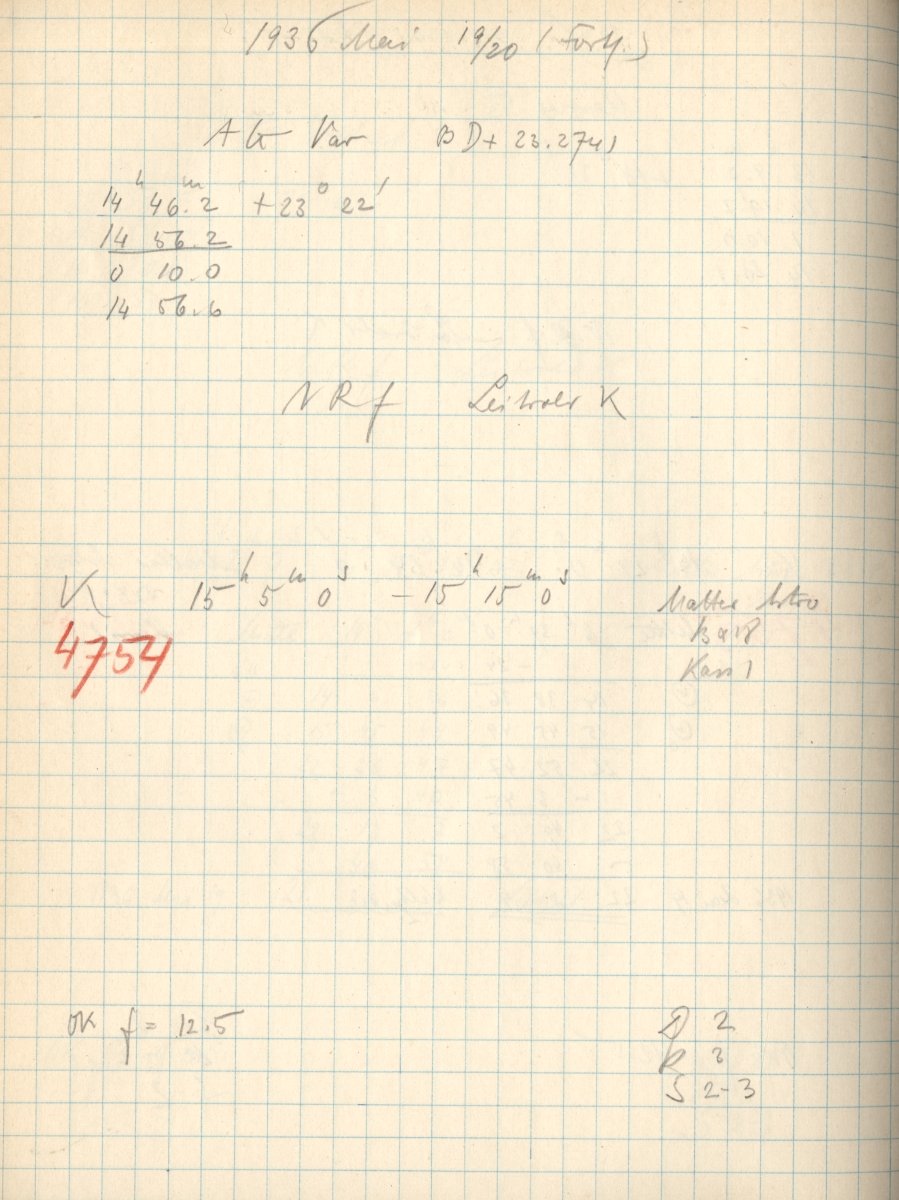 1936 Mai 19/20 (Forts.)
AG Var BD + 23.2741
14h 46m.2 + 23° 22'
14 56.2
0 10.0
14 56.6
NRf Leitrohr K
K 15h 5m 0s – 15h 15m 0s Matter Astro
4754
Kass 1
OK f = 12.5 D 2
R 3
S 2-3